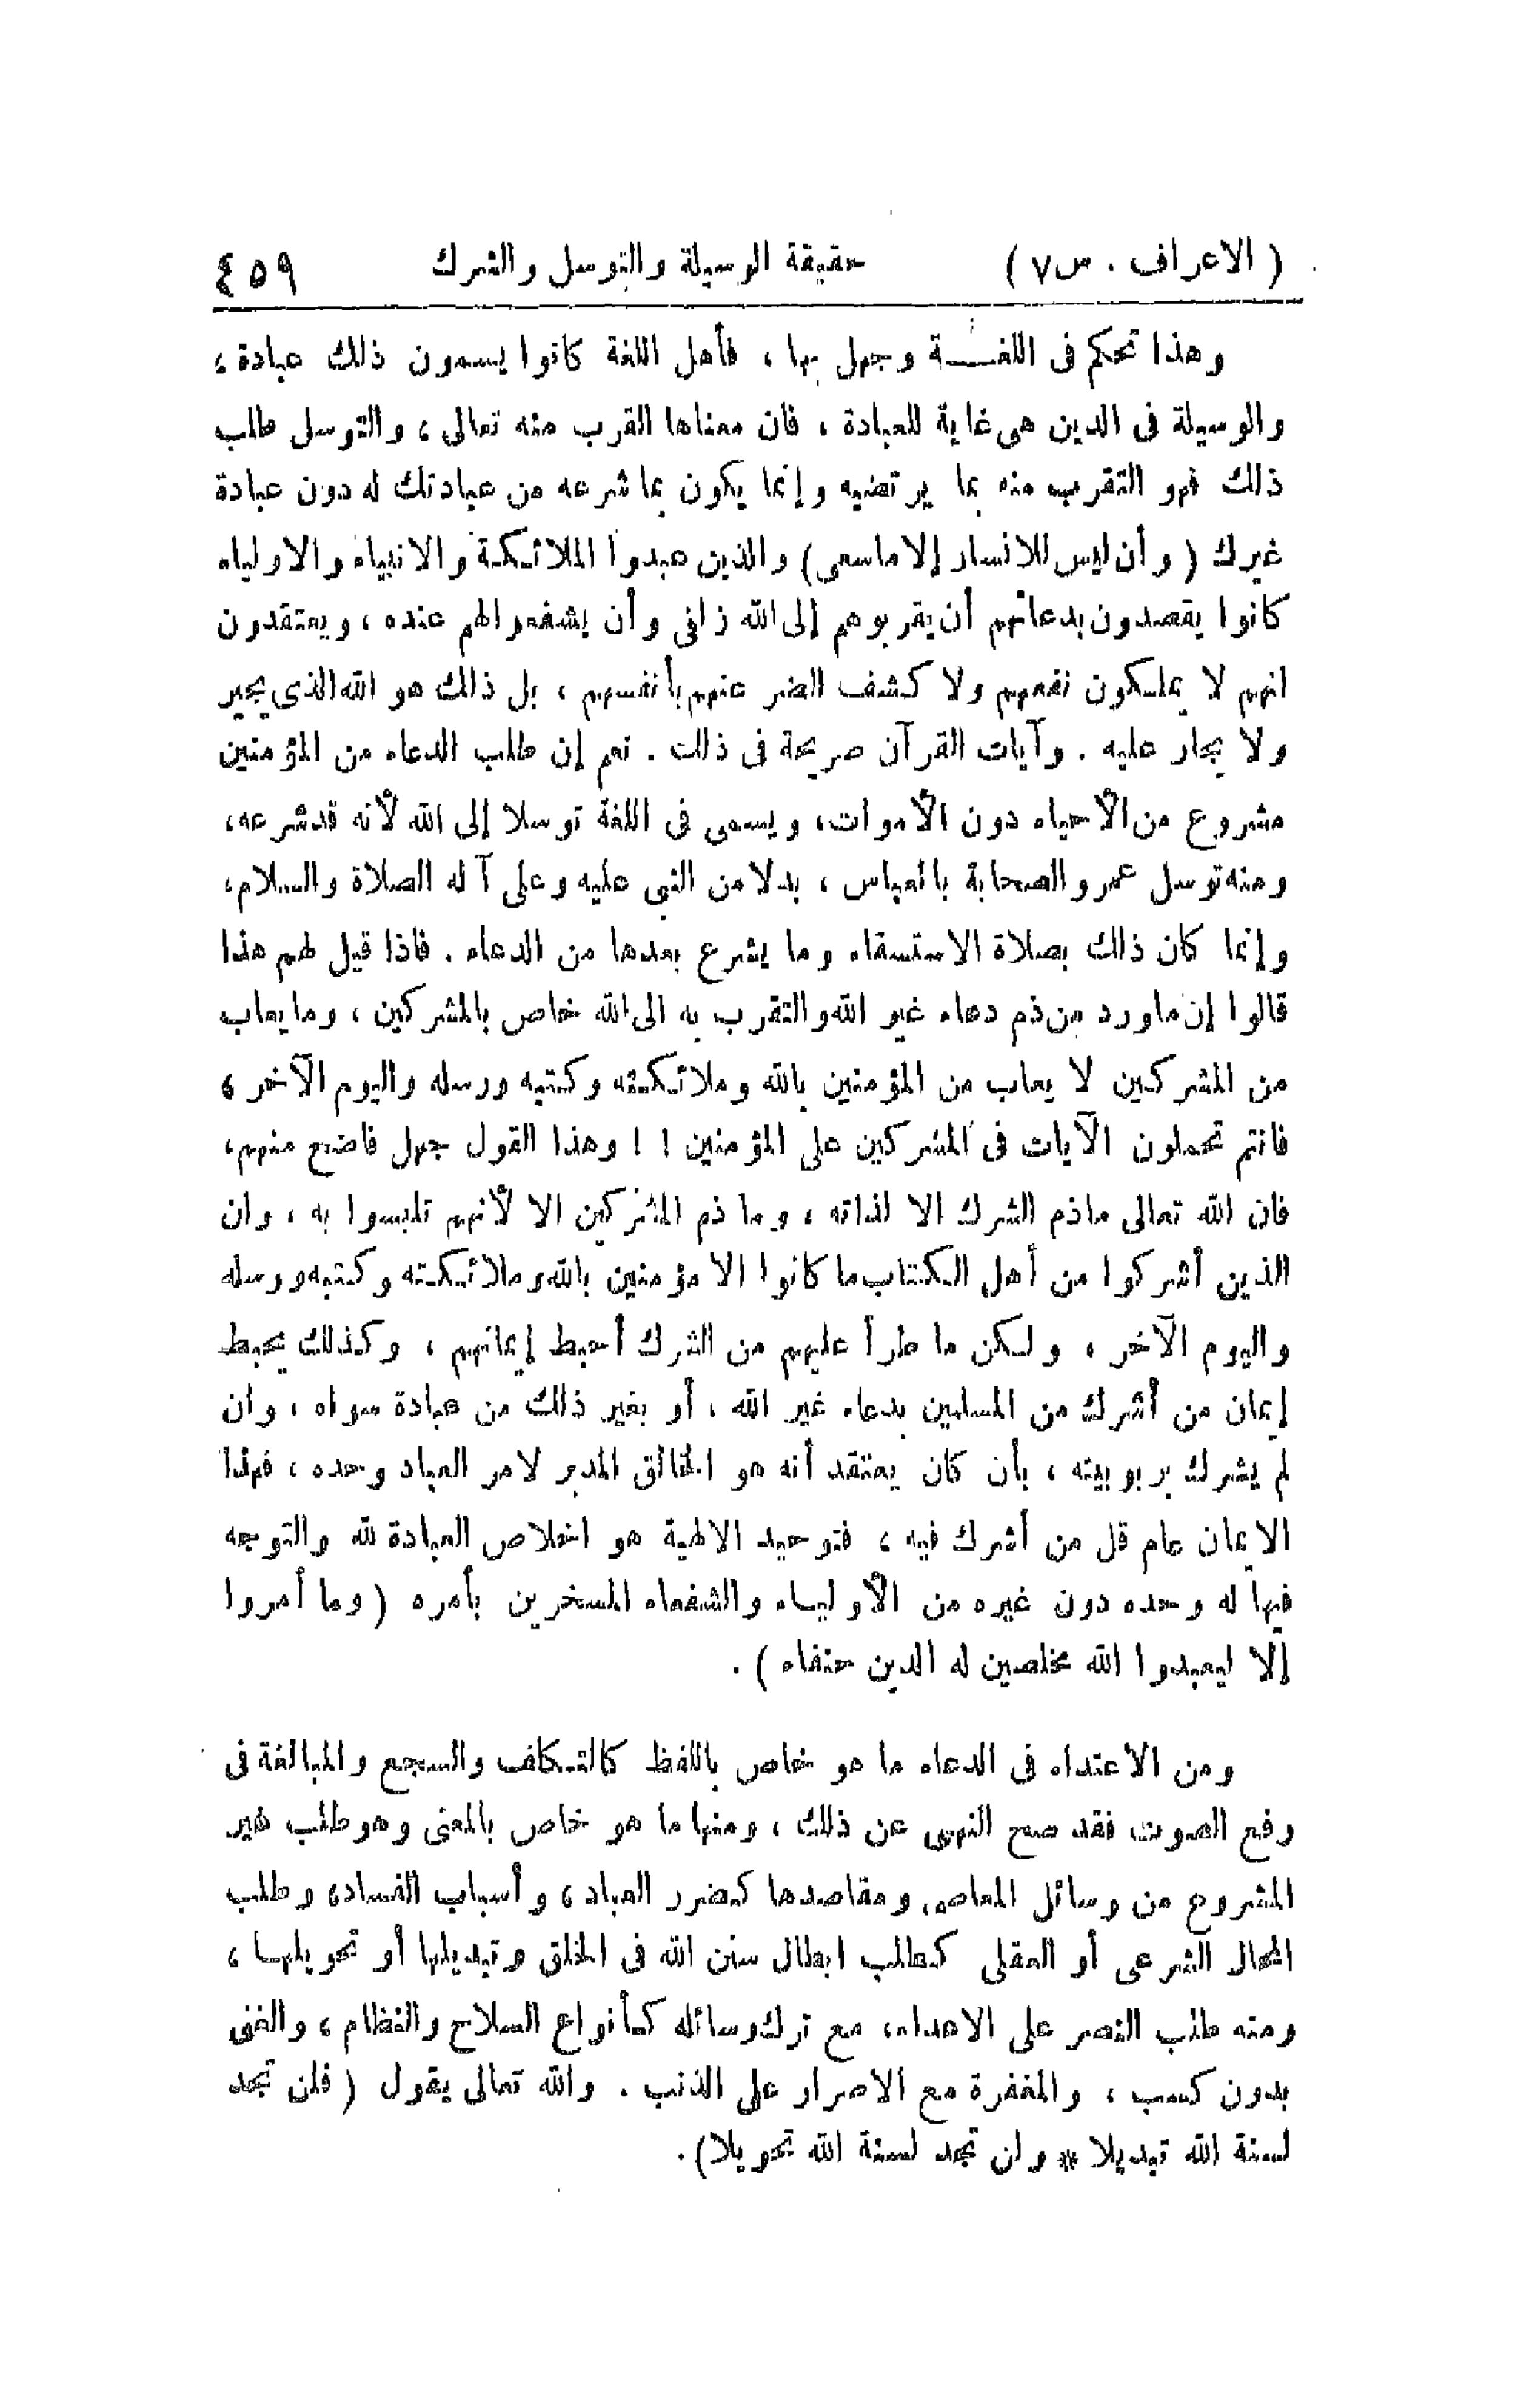 ( الاعراف . س ٧ ) حقيقة الوسيلة والتوسل والشرك ٤٥٩
وهذا تحكم فى اللغـــة وجهل بها ، فأهل اللغة كانوا يسمون ذلك عبادة ،
والوسيلة فى الدين هى غاية للعبادة ، فان معناها القرب منه تعالى ، والتوسل طلب
ذلك فهو التقرب منه بما يرتضيه وإنما يكون بما شرعه من عبادتك له دون عبادة
غيرك ( وأن ليس للانسان إلا ماسعى ) والذين عبدوا الملائكة والانبياء والاولياء
كانوا يقصدون بدعائهم أن يقربوهم إلى الله زلفى وأن يشفعوا لهم عنده ، ويعتقدون
انهم لا يملكون نفعهم ولا كشف الضر عنهم بأنفسهم ، بل ذلك هو الله الذى يجير
ولا يجار عليه . وآيات القرآن صريحة فى ذلك . نعم إن طلب الدعاء من المؤمنين
مشروع من الأحياء دون الأموات، ويسمى فى اللغة توسلا إلى الله لأنه قد شرعه،
ومنه توسل عمر والصحابة بالعباس ، بدلا من النبى عليه وعلى آله الصلاة والسلام،
وإنما كان ذلك بصلاة الاستسقاء وما يشرع بعدها من الدعاء . فاذا قيل لهم هذا
قالوا إن ماورد من ذم دعاء غير الله والتقرب به الى الله خاص بالمشركين ، وما يعاب
من المشركين لا يعاب من المؤمنين بالله وملائكته وكتبه ورسله واليوم الآخر ،
فانتم تحملون الآيات فى المشركين على المؤمنين ! ! وهذا القول جهل فاضح منهم،
فان الله تعالى ماذم الشرك الا لذاته ، وما ذم المشركين الا لأنهم تلبسوا به ، وان
الذين أشركوا من أهل الكتاب ما كانوا الا مؤمنين بالله وملائكته وكتبه ورسله
واليوم الآخر ، ولكن ما طرأ عليهم من الشرك أحبط إيمانهم ، وكذلك يحبط
إيمان من أشرك من المسلمين بدعاء غير الله ، أو بغير ذلك من عبادة سواه ، وان
لم يشرك بربوبيته ، بأن كان يعتقد أنه هو الخالق المدبر لامر العباد وحده ، فهذا
الايمان عام قل من أشرك فيه ، فتوحيد الالهية هو اخلاص العبادة لله والتوجه
فيها له وحده دون غيره من الأولياء والشفعاء المسخرين بأمره ( وما أمروا
إلا ليعبدوا الله مخلصين له الدين حنفاء ) .
ومن الاعتداء فى الدعاء ما هو خاص باللفظ كالتكلف والسجع والمبالغة فى
رفع الصوت فقد صح النهى عن ذلك ، ومنها ما هو خاص بالمعنى وهو طلب غير
المشروع من وسائل المعاصى ومقاصدها كضرر العباد ، وأسباب الفساد ، وطلب
المحال الشرعى أو العقلى كطلب ابطال سنن الله فى الخلق وتبديلها أو تحويلها ،
ومنه طلب النصر على الاعداء، مع ترك وسائله كأنواع السلاح والنظام ، والغنى
بدون كسب ، والمغفرة مع الاصرار على الذنب . والله تعالى يقول ( فلن تجد
لسنة الله تبديلا * ولن تجد لسنة الله تحويلا ) .